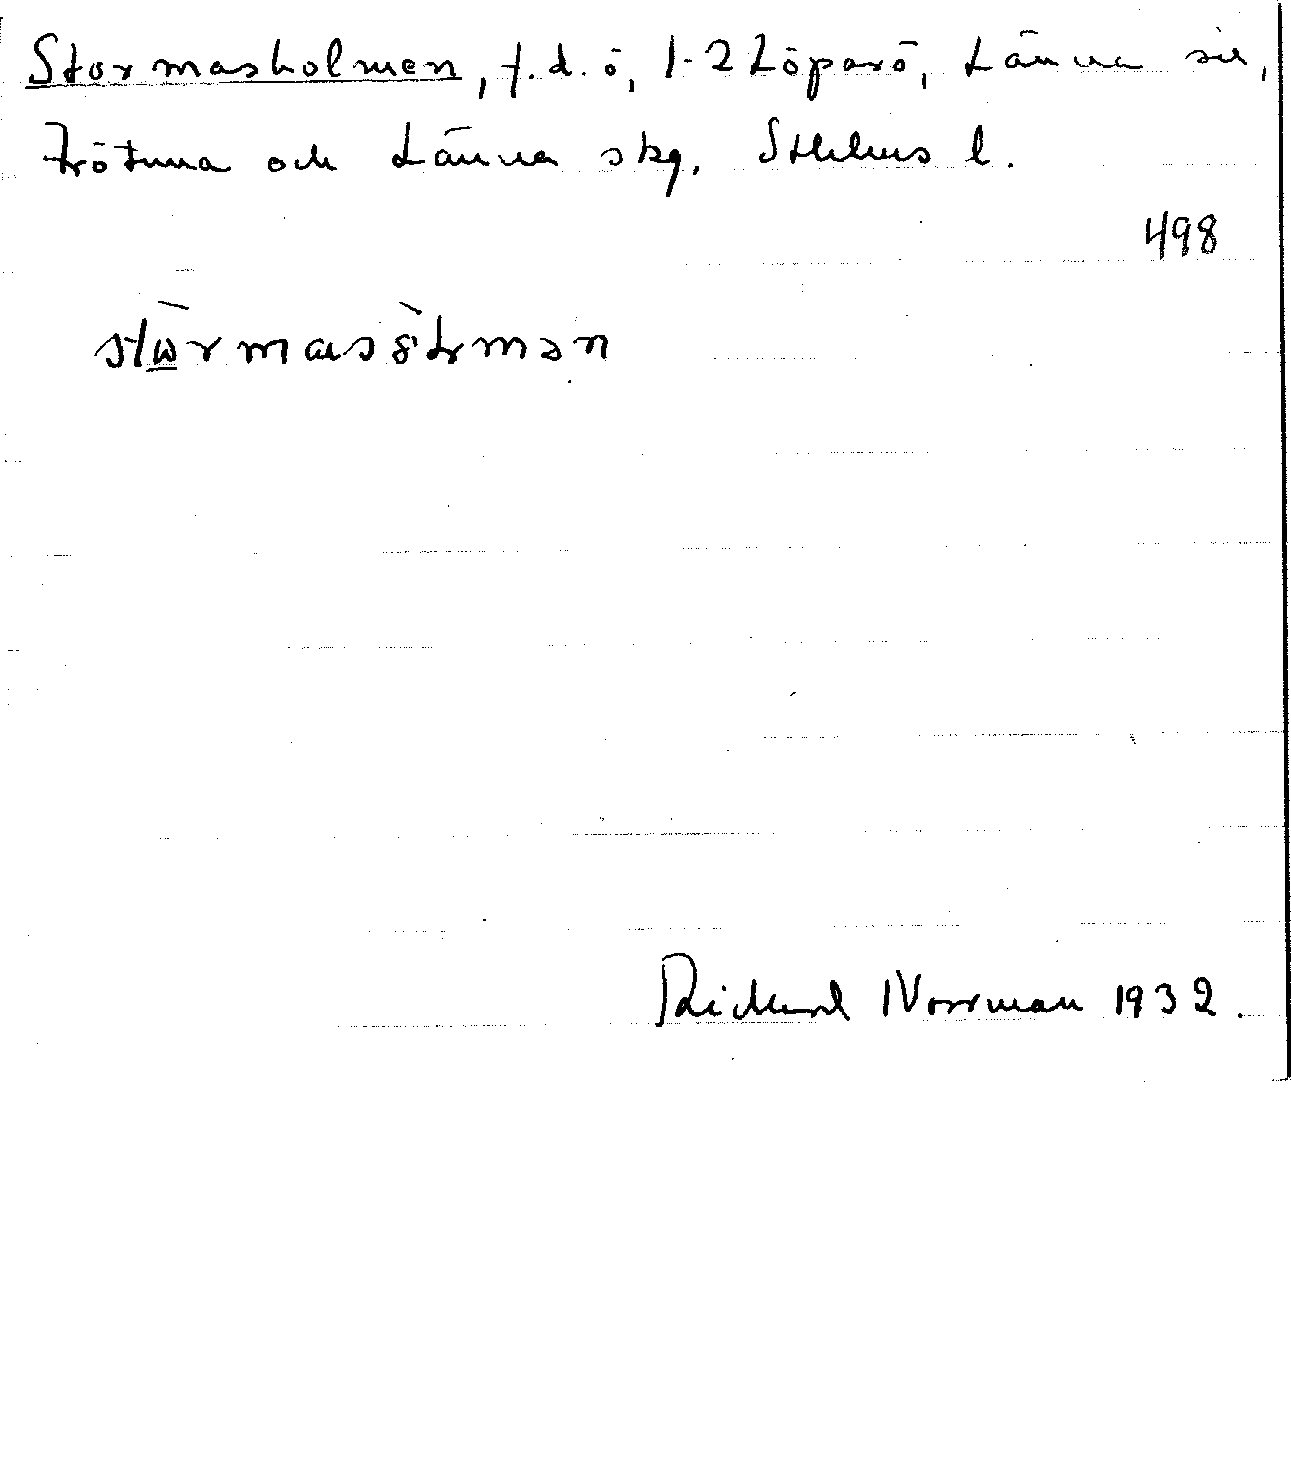 Stormasholmen, f.d. ö, 1-2 Löparö, Länna sn,
Frötuna och Länna skg, Sthlms l.
498
Rickard Norrman 1932.